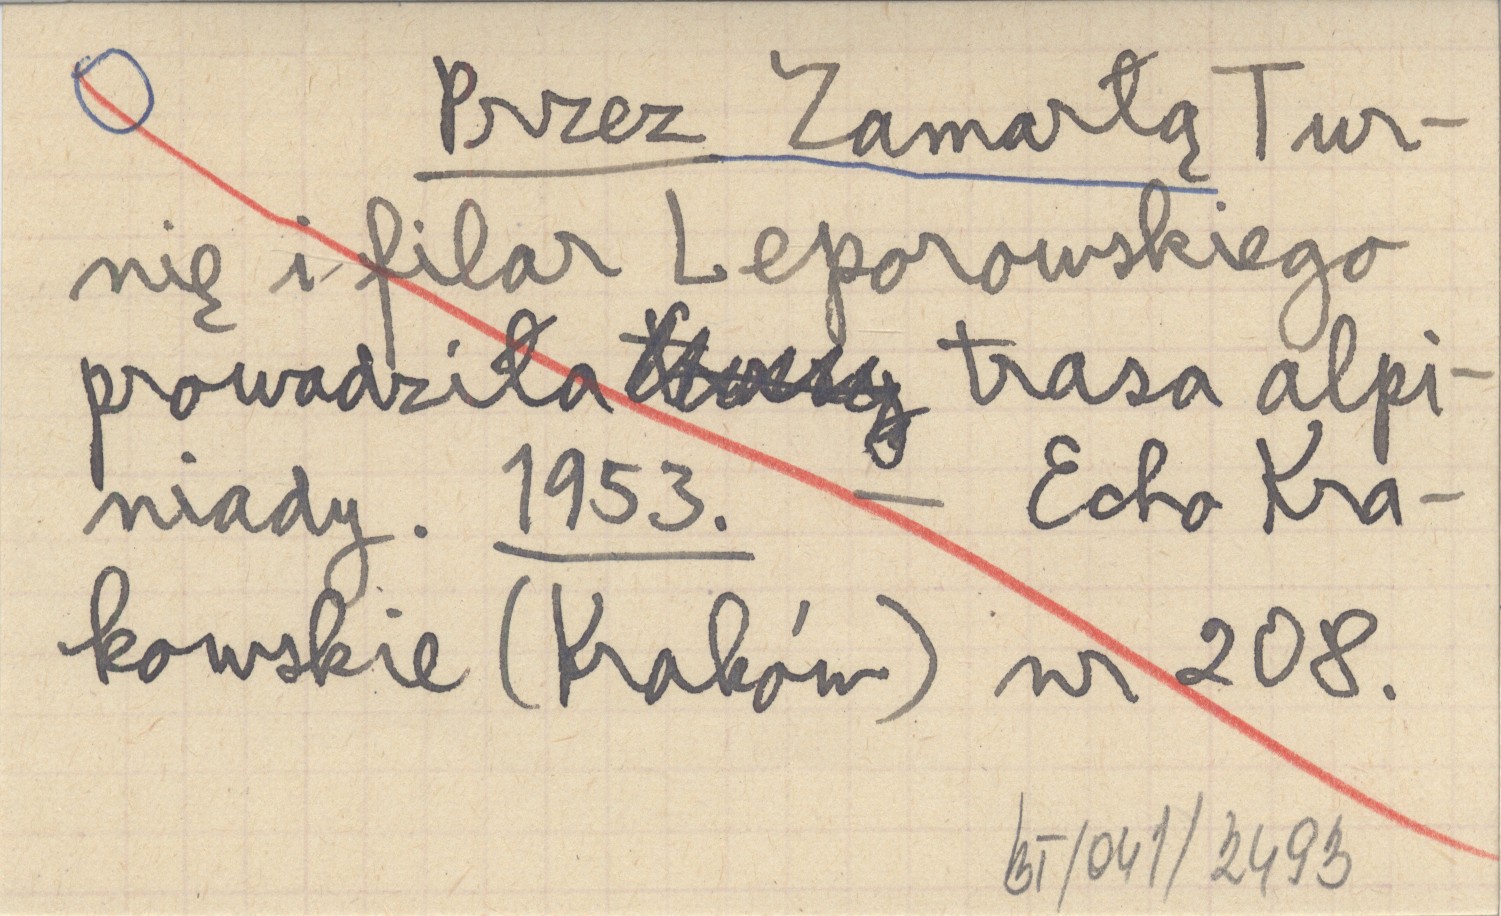 Przez Zamarłą Tur-
nię i filar Leporowskiego
prowadziła trasa alpi-
niady. 1953. — Echo Kra-
kowskie (Kraków) nr 208.
BT/041/2493